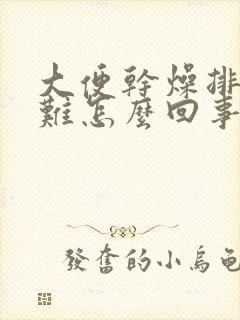 大便幹燥排
難怎麼回事
發奮的小烏龜